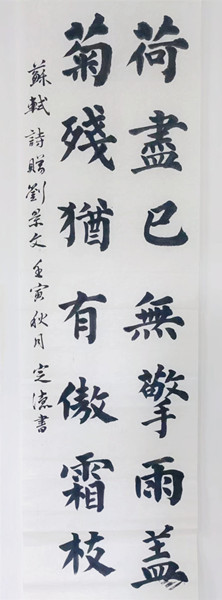 荷盡已無擎雨盖
菊殘猶有傲霜枝
蘇軾詩贈劉景文壬寅秋月定德書